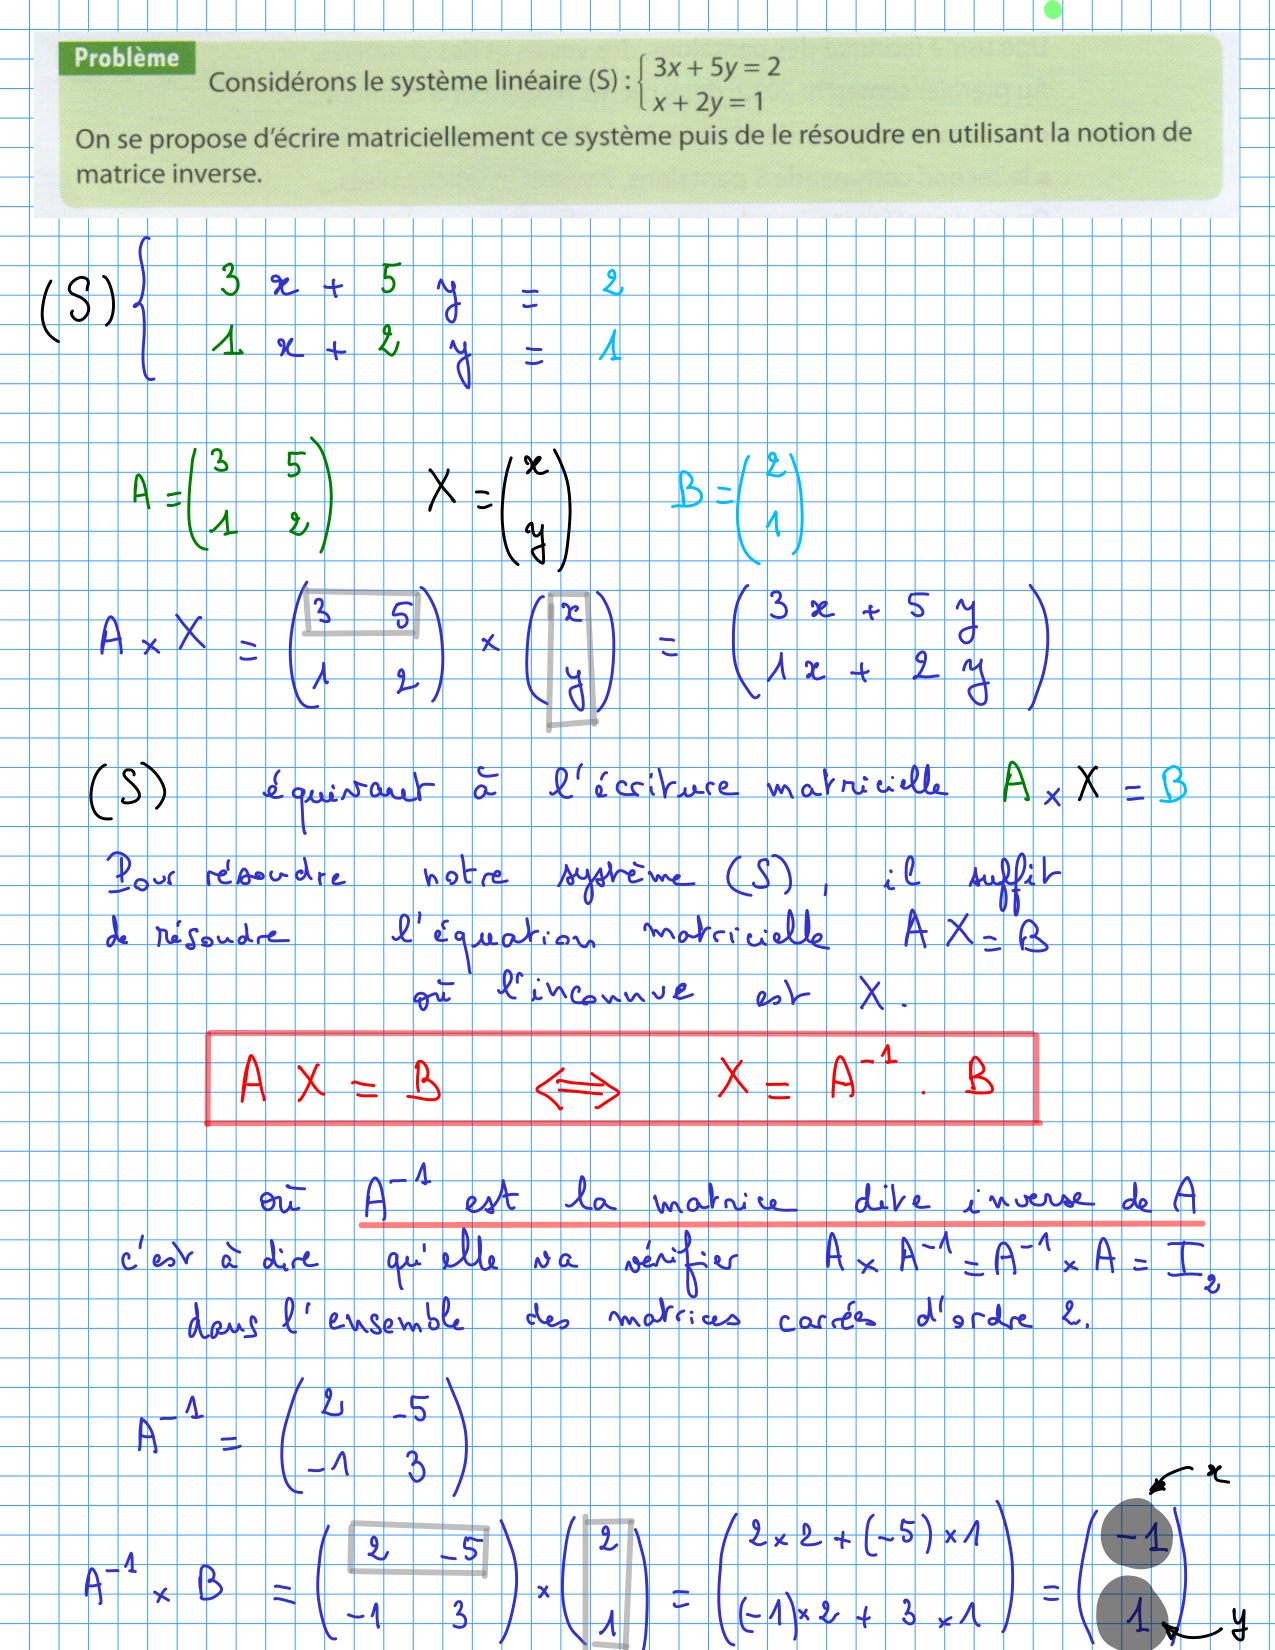 Problème
Considérons le système linéaire (S) : { 3x + 5y = 2
x + 2y = 1
On se propose d'écrire matriciellement ce système puis de le résoudre en utilisant la notion de
matrice inverse.
(S) { 3 x + 5 y = 2
1 x + 2 y = 1
A = ( 3 5 ; 1 2 ) X = ( x ; y ) B = ( 2 ; 1 )
A × X = ( 3 5 ; 1 2 ) × ( x ; y ) = ( 3 x + 5 y ; 1 x + 2 y )
(S) équivaut à l'écriture matricielle A × X = B
Pour résoudre notre système (S), il suffit
de résoudre l'équation matricielle A X = B
où l'inconnue est X.
A X = B ⟺ X = A⁻¹ . B
où A⁻¹ est la matrice dite inverse de A
c'est à dire qu'elle va vérifier A × A⁻¹ = A⁻¹ × A = I₂
dans l'ensemble des matrices carrées d'ordre 2.
A⁻¹ = ( 2 -5 ; -1 3 )
x
A⁻¹ × B = ( 2 -5 ; -1 3 ) × ( 2 ; 1 ) = ( 2 × 2 + (-5) × 1 ; (-1) × 2 + 3 × 1 ) = ( -1 ; 1 )
y